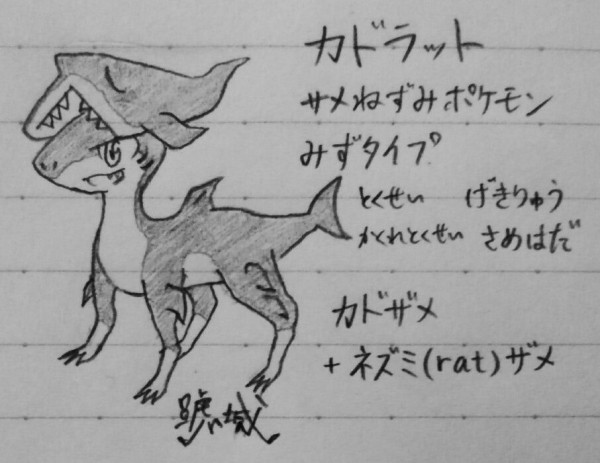 カドラット
サメねずみポケモン
みずタイプ
とくせい げきりゅう
かくれとくせい さめはだ
カドザメ
+ネズミ(rat)ザメ